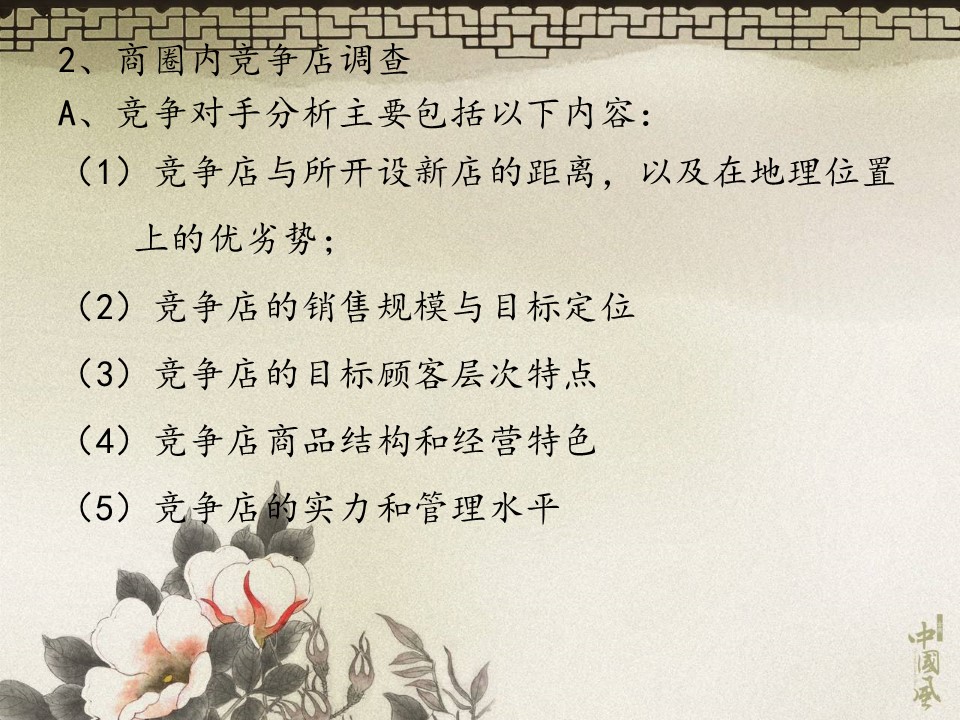 2、商圈内竞争店调查
A、竞争对手分析主要包括以下内容：
（1）竞争店与所开设新店的距离，以及在地理位置
上的优劣势；
（2）竞争店的销售规模与目标定位
（3）竞争店的目标顾客层次特点
（4）竞争店商品结构和经营特色
（5）竞争店的实力和管理水平
中國風